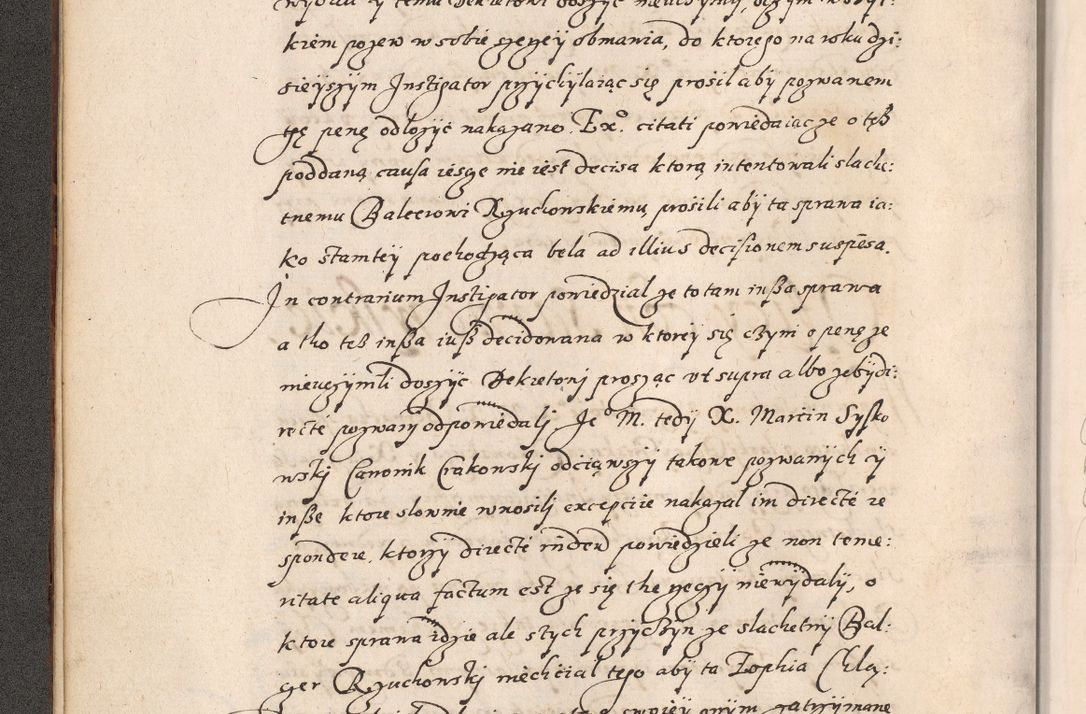 wydali y temu Dekretowi dosyć nieuczynili, oczym wszyt:
kiem pozew w sobie szerzey obmawia, do ktorego na roku dzi:
sieyszym Instigator przychylaiąc się prosił aby pozwanem
tę penę odłożyć nakazano. Exº. citati powiedaiąc ze o tęß
poddaną causa iescze nie iest decisa ktorą intentowali slache:
tnemu Balcerowi Rzuchowskiemu, prosili aby ta sprawa ia:
ko stamtey pochodząca bela ad illius decisionem suspēsa.
In contrarium Instigator powiedzial ze to tam inßa sprawa
a tho teß inßa iuß decidowana w ktorey się czym o penę ze
nieuczymli dosyć Dekretowj prosząc vt supra albo zeby di:
recte pozwanj odpowiedalj. Jeº M. tedy X. Marcin Sysko
wskj Canonik Crakowskj odciąwszy takowe pozwanych y
inße ktore slownie wnosilj excepcije nakazal im directe re
spondere, ktorzy directe indeu powiedzieli ze non teme:
ritate aliqua factum est ze się the rzeczy niewydaly, o
ktore sprawa idzie ale stych przyczyn ze slachetny Bal:
zer Rzuchowskj niechcial tego aby ta Zophia Chlą: